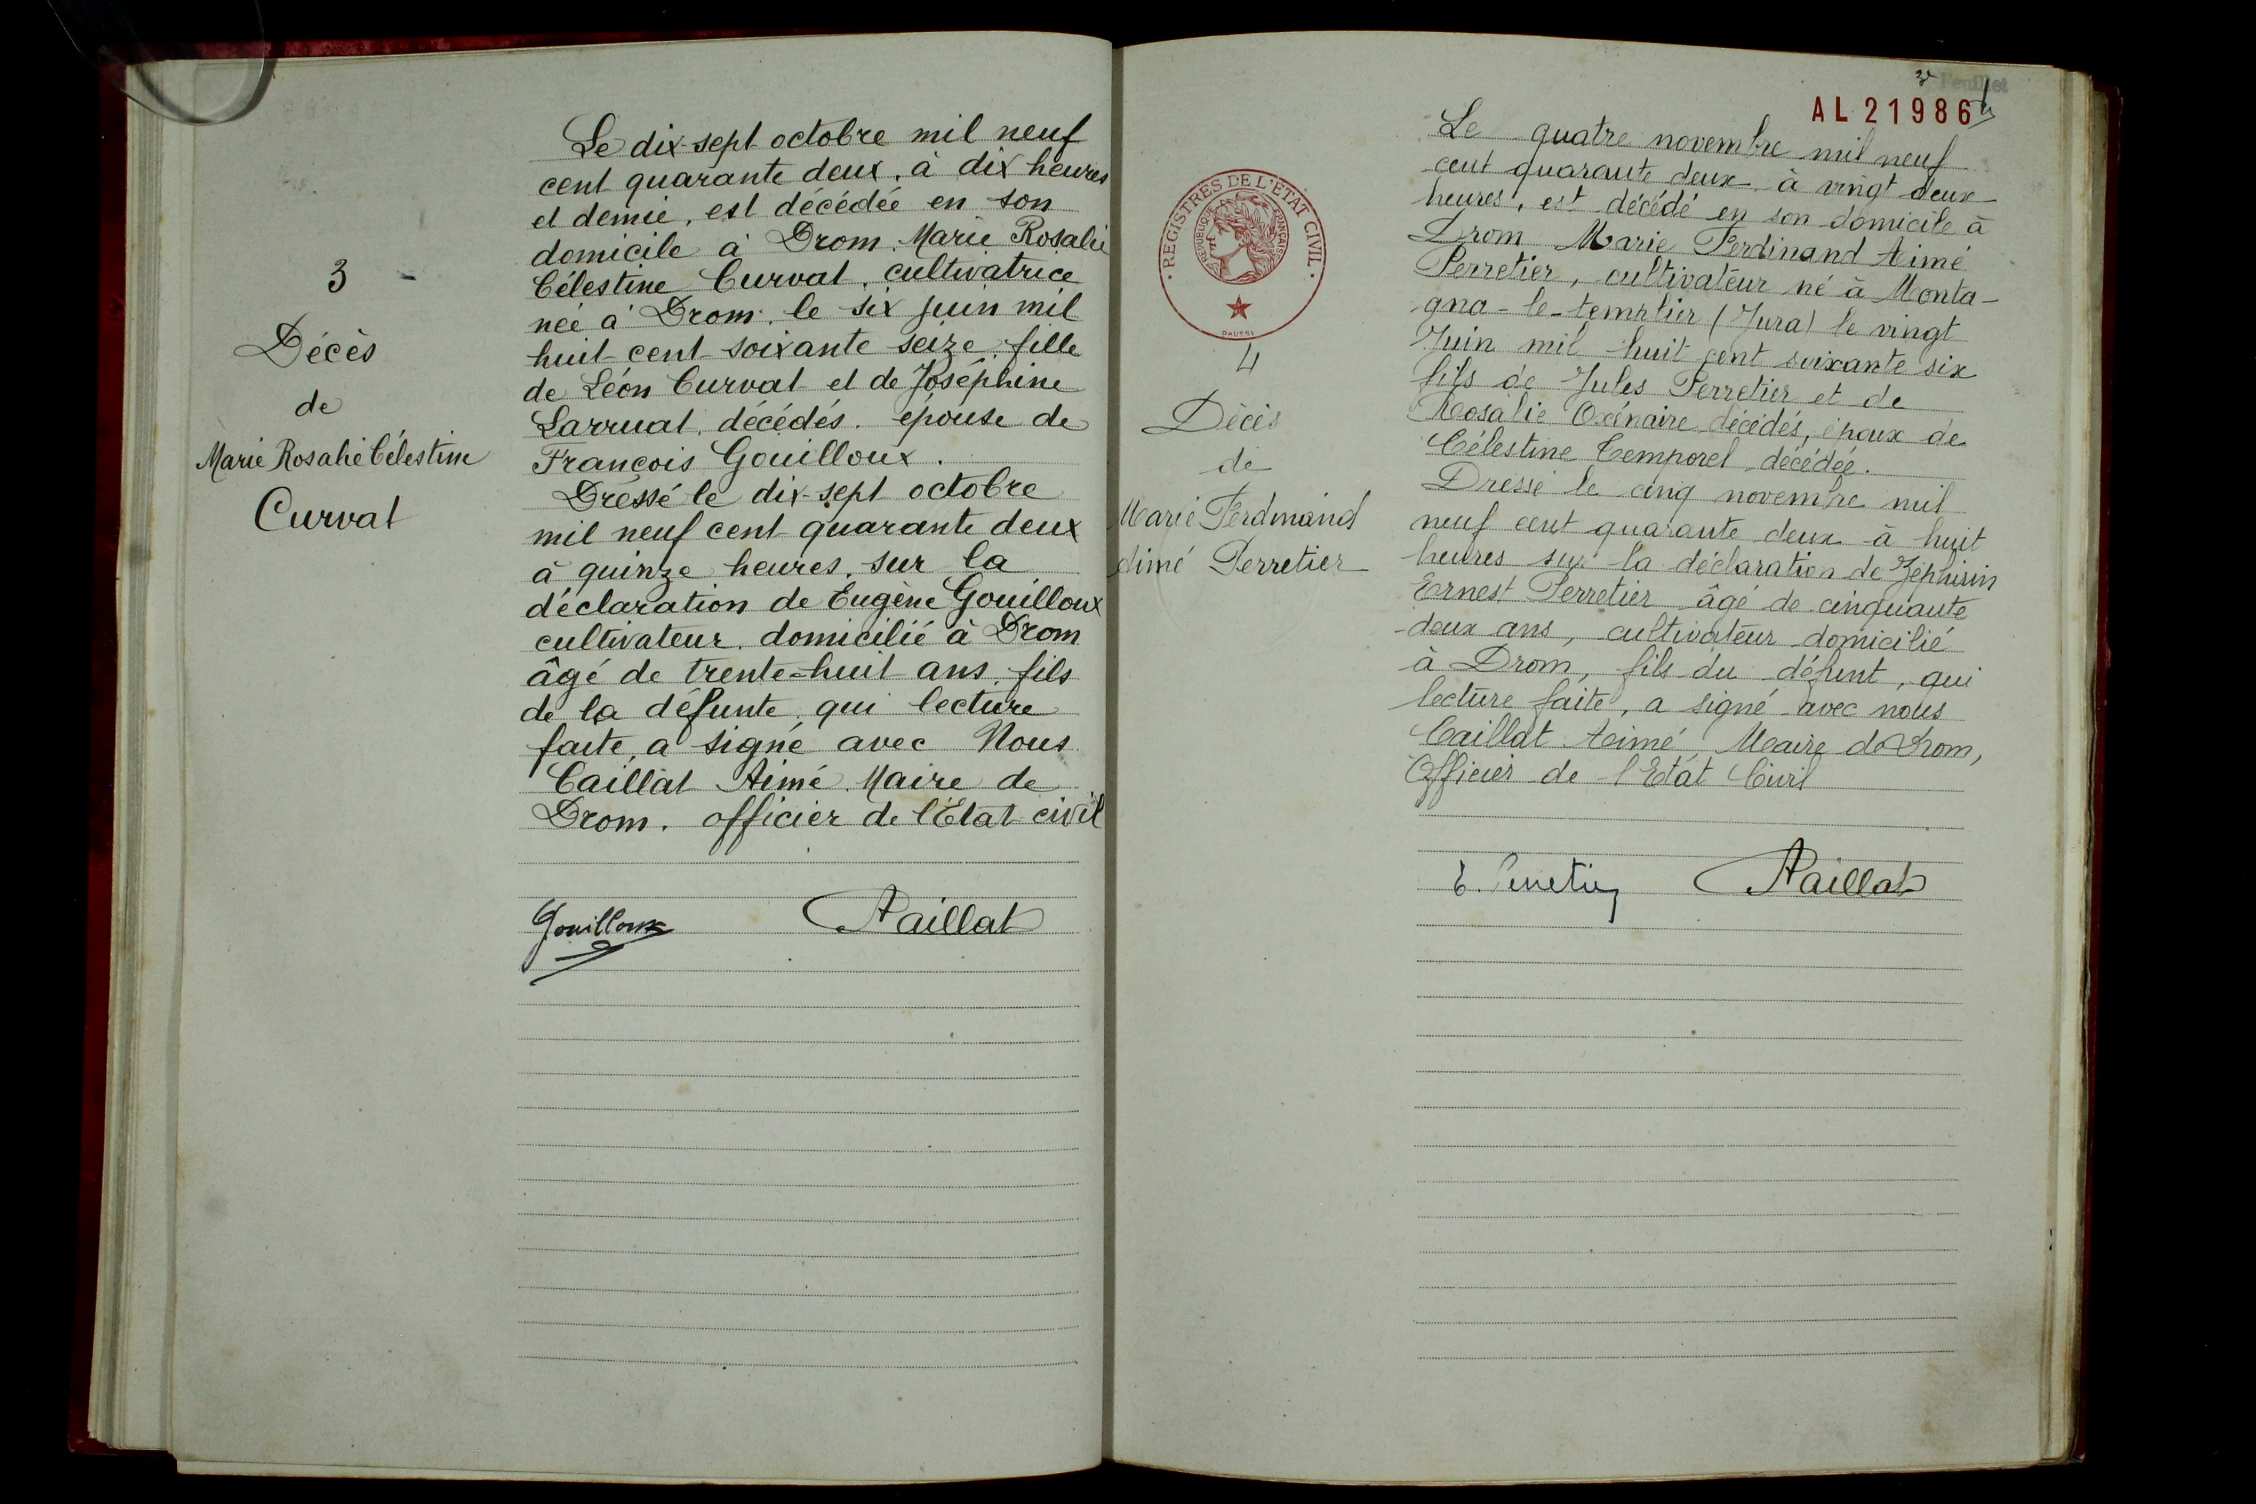 3
Décès
de
Marie Rosalie Célestine
Curval
Le dix-sept octobre mil neuf
cent quarante deux, à dix heures
et demie, est décédée en son
domicile à Drom. Marie Rosalie
Célestine Curval, cultivatrice
née à Drom. le six juin mil
huit cent soixante seize. fille
de Léon Curval et de Joséphine
Larrual, décédés. épouse de
François Gouilloux.
Dressé le dix-sept octobre
mil neuf cent quarante deux
à quinze heures, sur la
déclaration de Eugène Gouilloux
cultivateur, domicilié à Drom
âgé de trente-huit ans, fils
de la défunte, qui lecture
faite, a signé avec Nous
Caillat Aimé. Maire de
Drom. officier de l'Etat civil
Gouilloux
ACaillat
3e Feuillet
AL 21986
REGISTRES DE L'ETAT CIVIL
REPUBLIQUE FRANÇAISE
4
Décès
de
Marie Ferdinand
Aimé Perretier
Le quatre novembre mil neuf
cent quarante deux à vingt deux
heures, est décédé en son domicile à
Drom Marie Ferdinand Aimé
Perretier, cultivateur né à Monta-
gna-le-templier (Jura) le vingt
Juin mil huit cent soixante six
fils de Jules Perretier et de
Rosalie Oxénaire décédés, époux de
Célestine Temporel décédée.
Dressé le cinq novembre mil
neuf cent quarante deux à huit
heures sur la déclaration de Zéphirin
Ernest Perretier âgé de cinquante
deux ans, cultivateur domicilié
à Drom, fils du défunt, qui
lecture faite, a signé avec nous
Caillat Aimé, Maire de Drom,
Officier de l'Etat Civil
E. Perretier
ACaillat